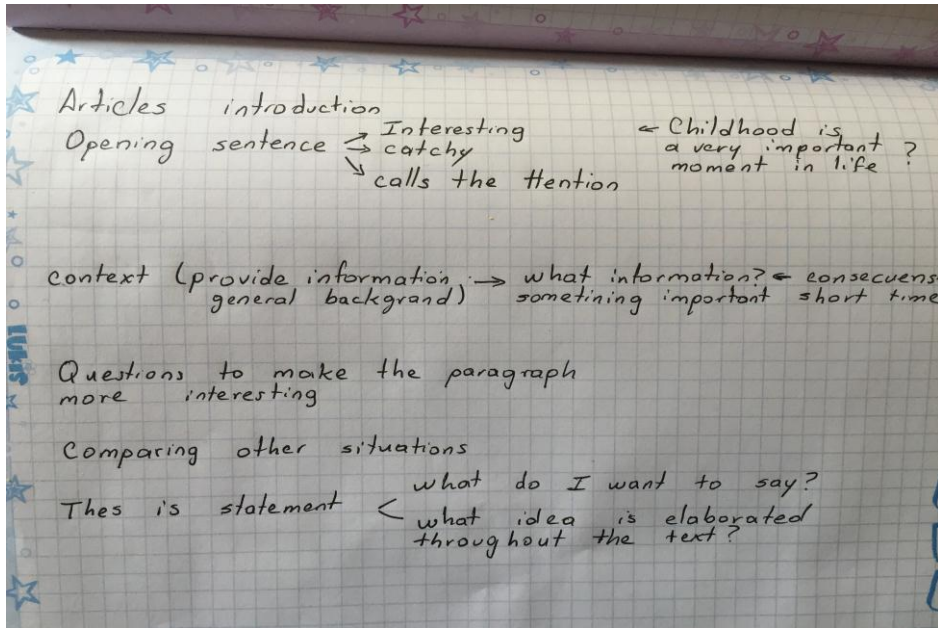 Articles introduction
Opening sentence → Interesting
→ catchy
↘ calls the ttention
← Childhood is
a very important ?
moment in life
context (provide information → what information? ← consecuens
general backgrand) sometining important short time
Questions to make the paragraph
more interesting
Comparing other situations
Thes is statement < what do I want to say?
what idea is elaborated
throughout the text?